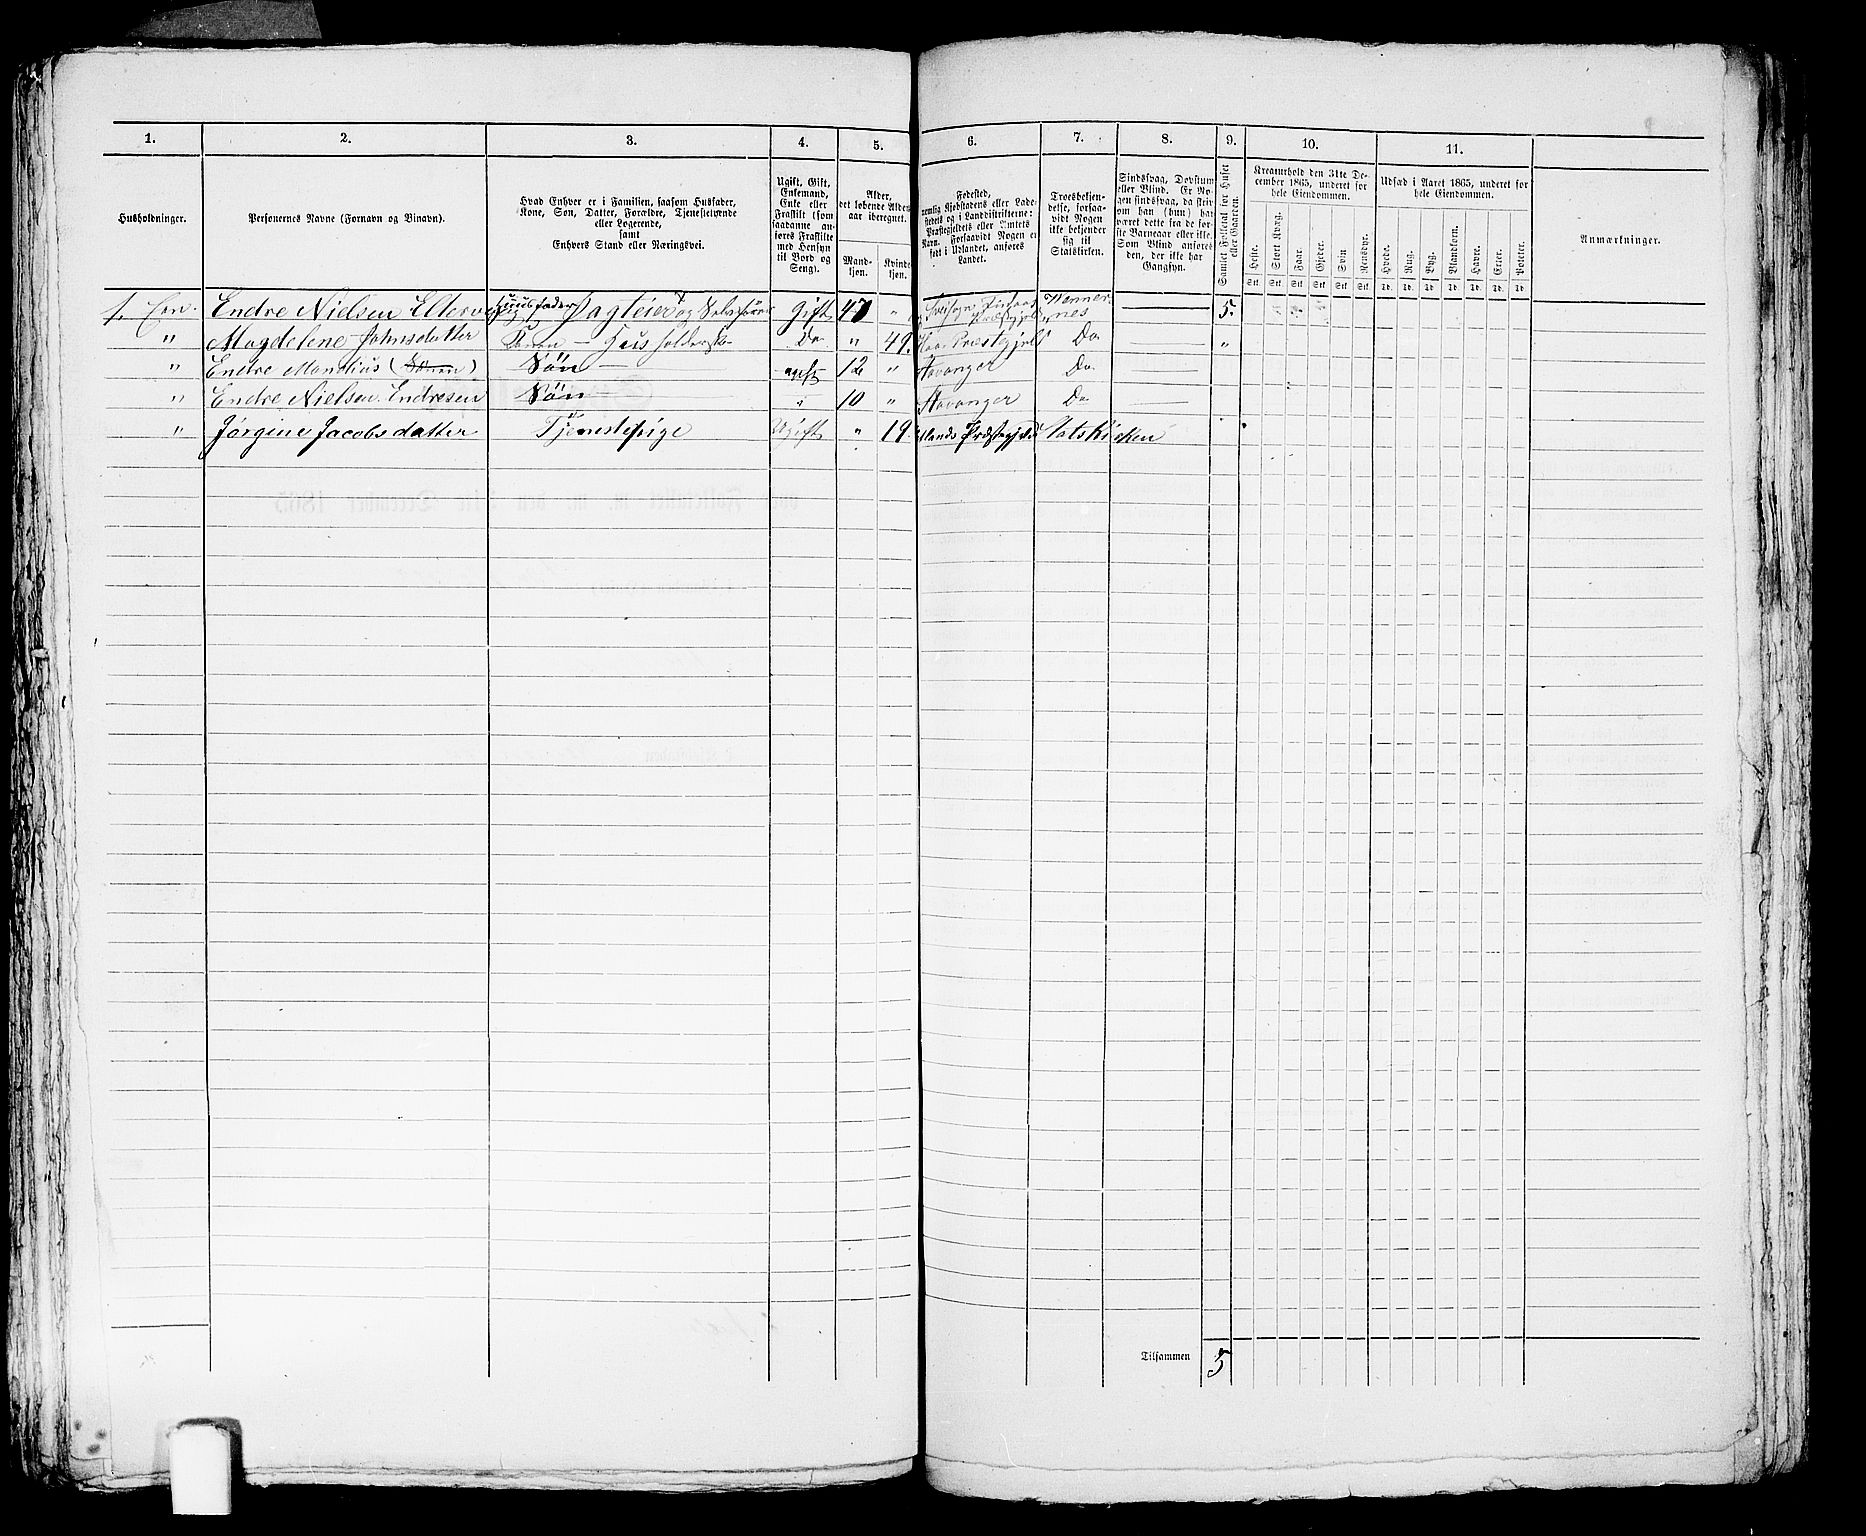 1. 2. 3. 4. 5. 6. 7. 8. 9. 10. 11.
Husholdninger.
Personernes Navne (Fornavn og Binavn).
Hvad Enhver er i Familien, saasom Husfader,
Kone, Søn, Datter, Forældre, Tjenestetyende
eller Logerende,
samt
Enhvers Stand eller Næringsvei.
Ugift, Gift,
Enkemand,
Enke eller
Fraskilt (som
saadanne an-
føres Fraskilte
med Hensyn
til Bord og
Seng).
Alder,
det løbende Alders-
aar iberegnet.
Mand-
kjøn.
Kvinde-
kjøn.
Fødested,
nemlig Kjøbstadens eller Lade-
stedets og i Landdistrikterne:
Præstegjeldets eller Amtets
Navn. Forsaavidt Nogen er
født i Udlandet, anføres
Landet.
Troesbekjen-
delse, forsaa-
vidt Nogen
ikke bekjender
sig til
Statskirken.
Sindssvag, Døvstum
eller Blind. Er No-
gen sindssvag, da skriv
om han (hun) har
været dette fra de før-
ste Barneaar eller ikke.
Som Blind anføres
den, der ikke har
Gangsyn.
Samlet Folketal for Huset
eller Gaarden.
Kreaturhold den 31te De-
cember 1865, underet for
hele Eiendommen.
Heste. Stort Kvæg. Faar. Gjeter. Svin Rensdyr.
Stk. Stk. Stk. Stk. Stk. Stk.
Udsæd i Aaret 1865, underet for
hele Eiendommen.
Hvede. Rug. Byg. Blandkorn. Havre. Erter. Poteter.
Td. Td. Td. Td. Td. Td. Td.
Anmærkninger.
1. Een. Endre Nielsen Huusfader og Gift 47 " 5.
" Magdelene Johnsdatter Do " 49. Præstegjeld Do "
" Endre Mandius (Sønen) Søn ugift 12 " Stavanger Do
" Endre Nielsen Endresen Søn " 10 " Stavanger Do
" Jørgine Jacobsdatter Tjenestepige Ugift " 19. Præstegjeld Statskirken
Tilsammen 5